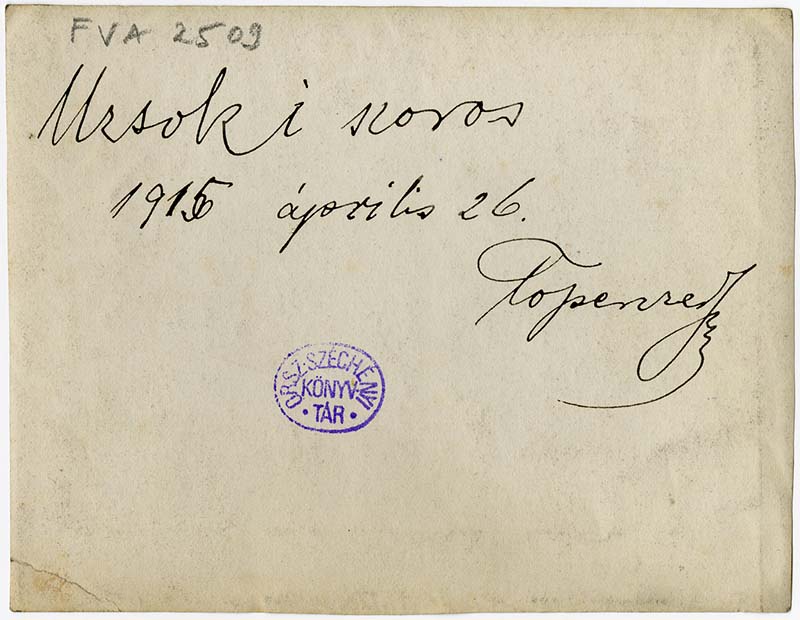 FVA 2509
Uzsoki szoros
1915 április 26.
ORSZ. SZÉCHÉNYI
KÖNYV-
TÁR